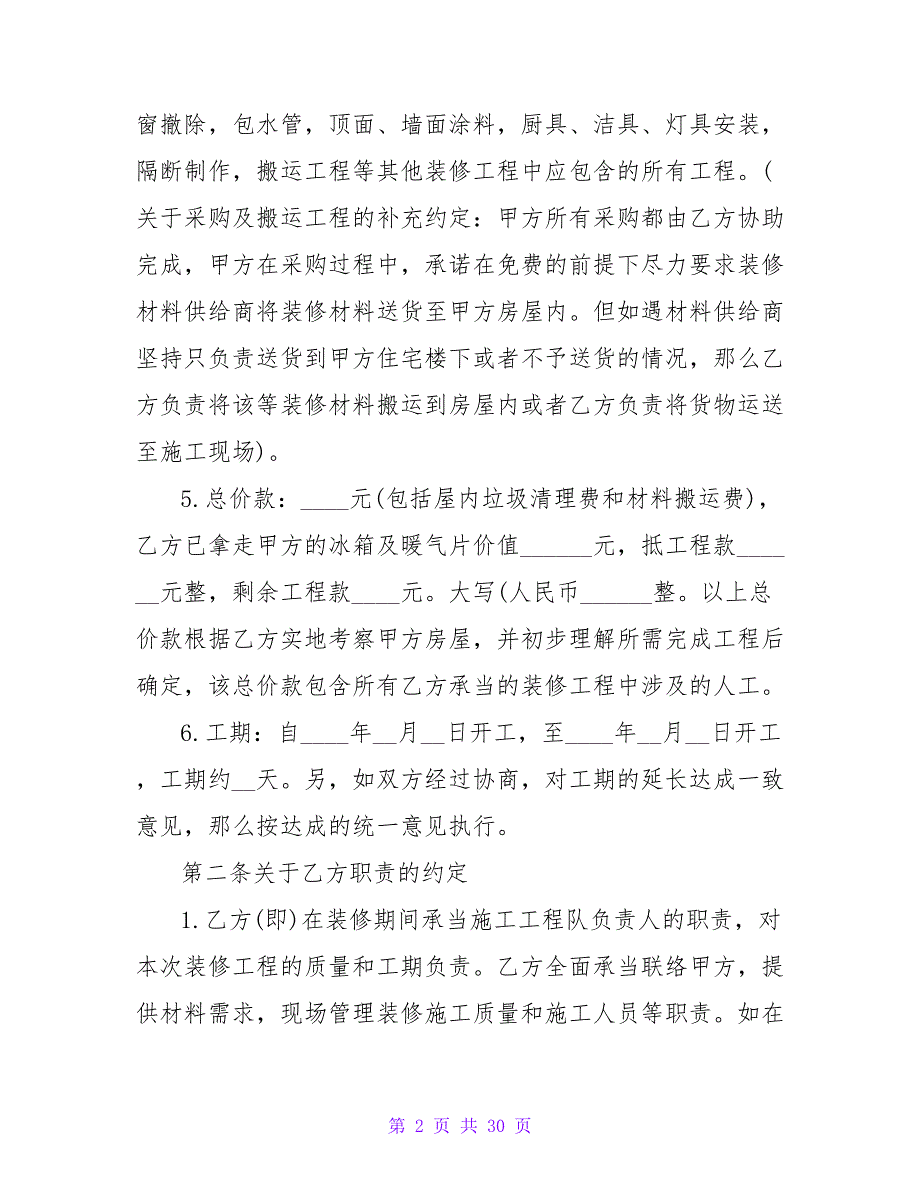 窗撤除，包水管，顶面、墙面涂料，厨具、洁具、灯具安装，
隔断制作，搬运工程等其他装修工程中应包含的所有工程。(
关于采购及搬运工程的补充约定：甲方所有采购都由乙方协助
完成，甲方在采购过程中，承诺在免费的前提下尽力要求装修
材料供给商将装修材料送货至甲方房屋内。但如遇材料供给商
坚持只负责送货到甲方住宅楼下或者不予送货的情况，那么乙
方负责将该等装修材料搬运到房屋内或者乙方负责将货物运送
至施工现场)。
5.总价款：____元(包括屋内垃圾清理费和材料搬运费)，
乙方已拿走甲方的冰箱及暖气片价值______元，抵工程款____
__元整，剩余工程款____元。大写(人民币______整。以上总
价款根据乙方实地考察甲方房屋，并初步理解所需完成工程后
确定，该总价款包含所有乙方承当的装修工程中涉及的人工。
6.工期：自____年__月__日开工，至____年__月__日开工
，工期约__天。另，如双方经过协商，对工期的延长达成一致
意见，那么按达成的统一意见执行。
第二条关于乙方职责的约定
1.乙方(即)在装修期间承当施工工程队负责人的职责，对
本次装修工程的质量和工期负责。乙方全面承当联络甲方，提
供材料需求，现场管理装修施工质量和施工人员等职责。如在
第 2 页 共 30 页